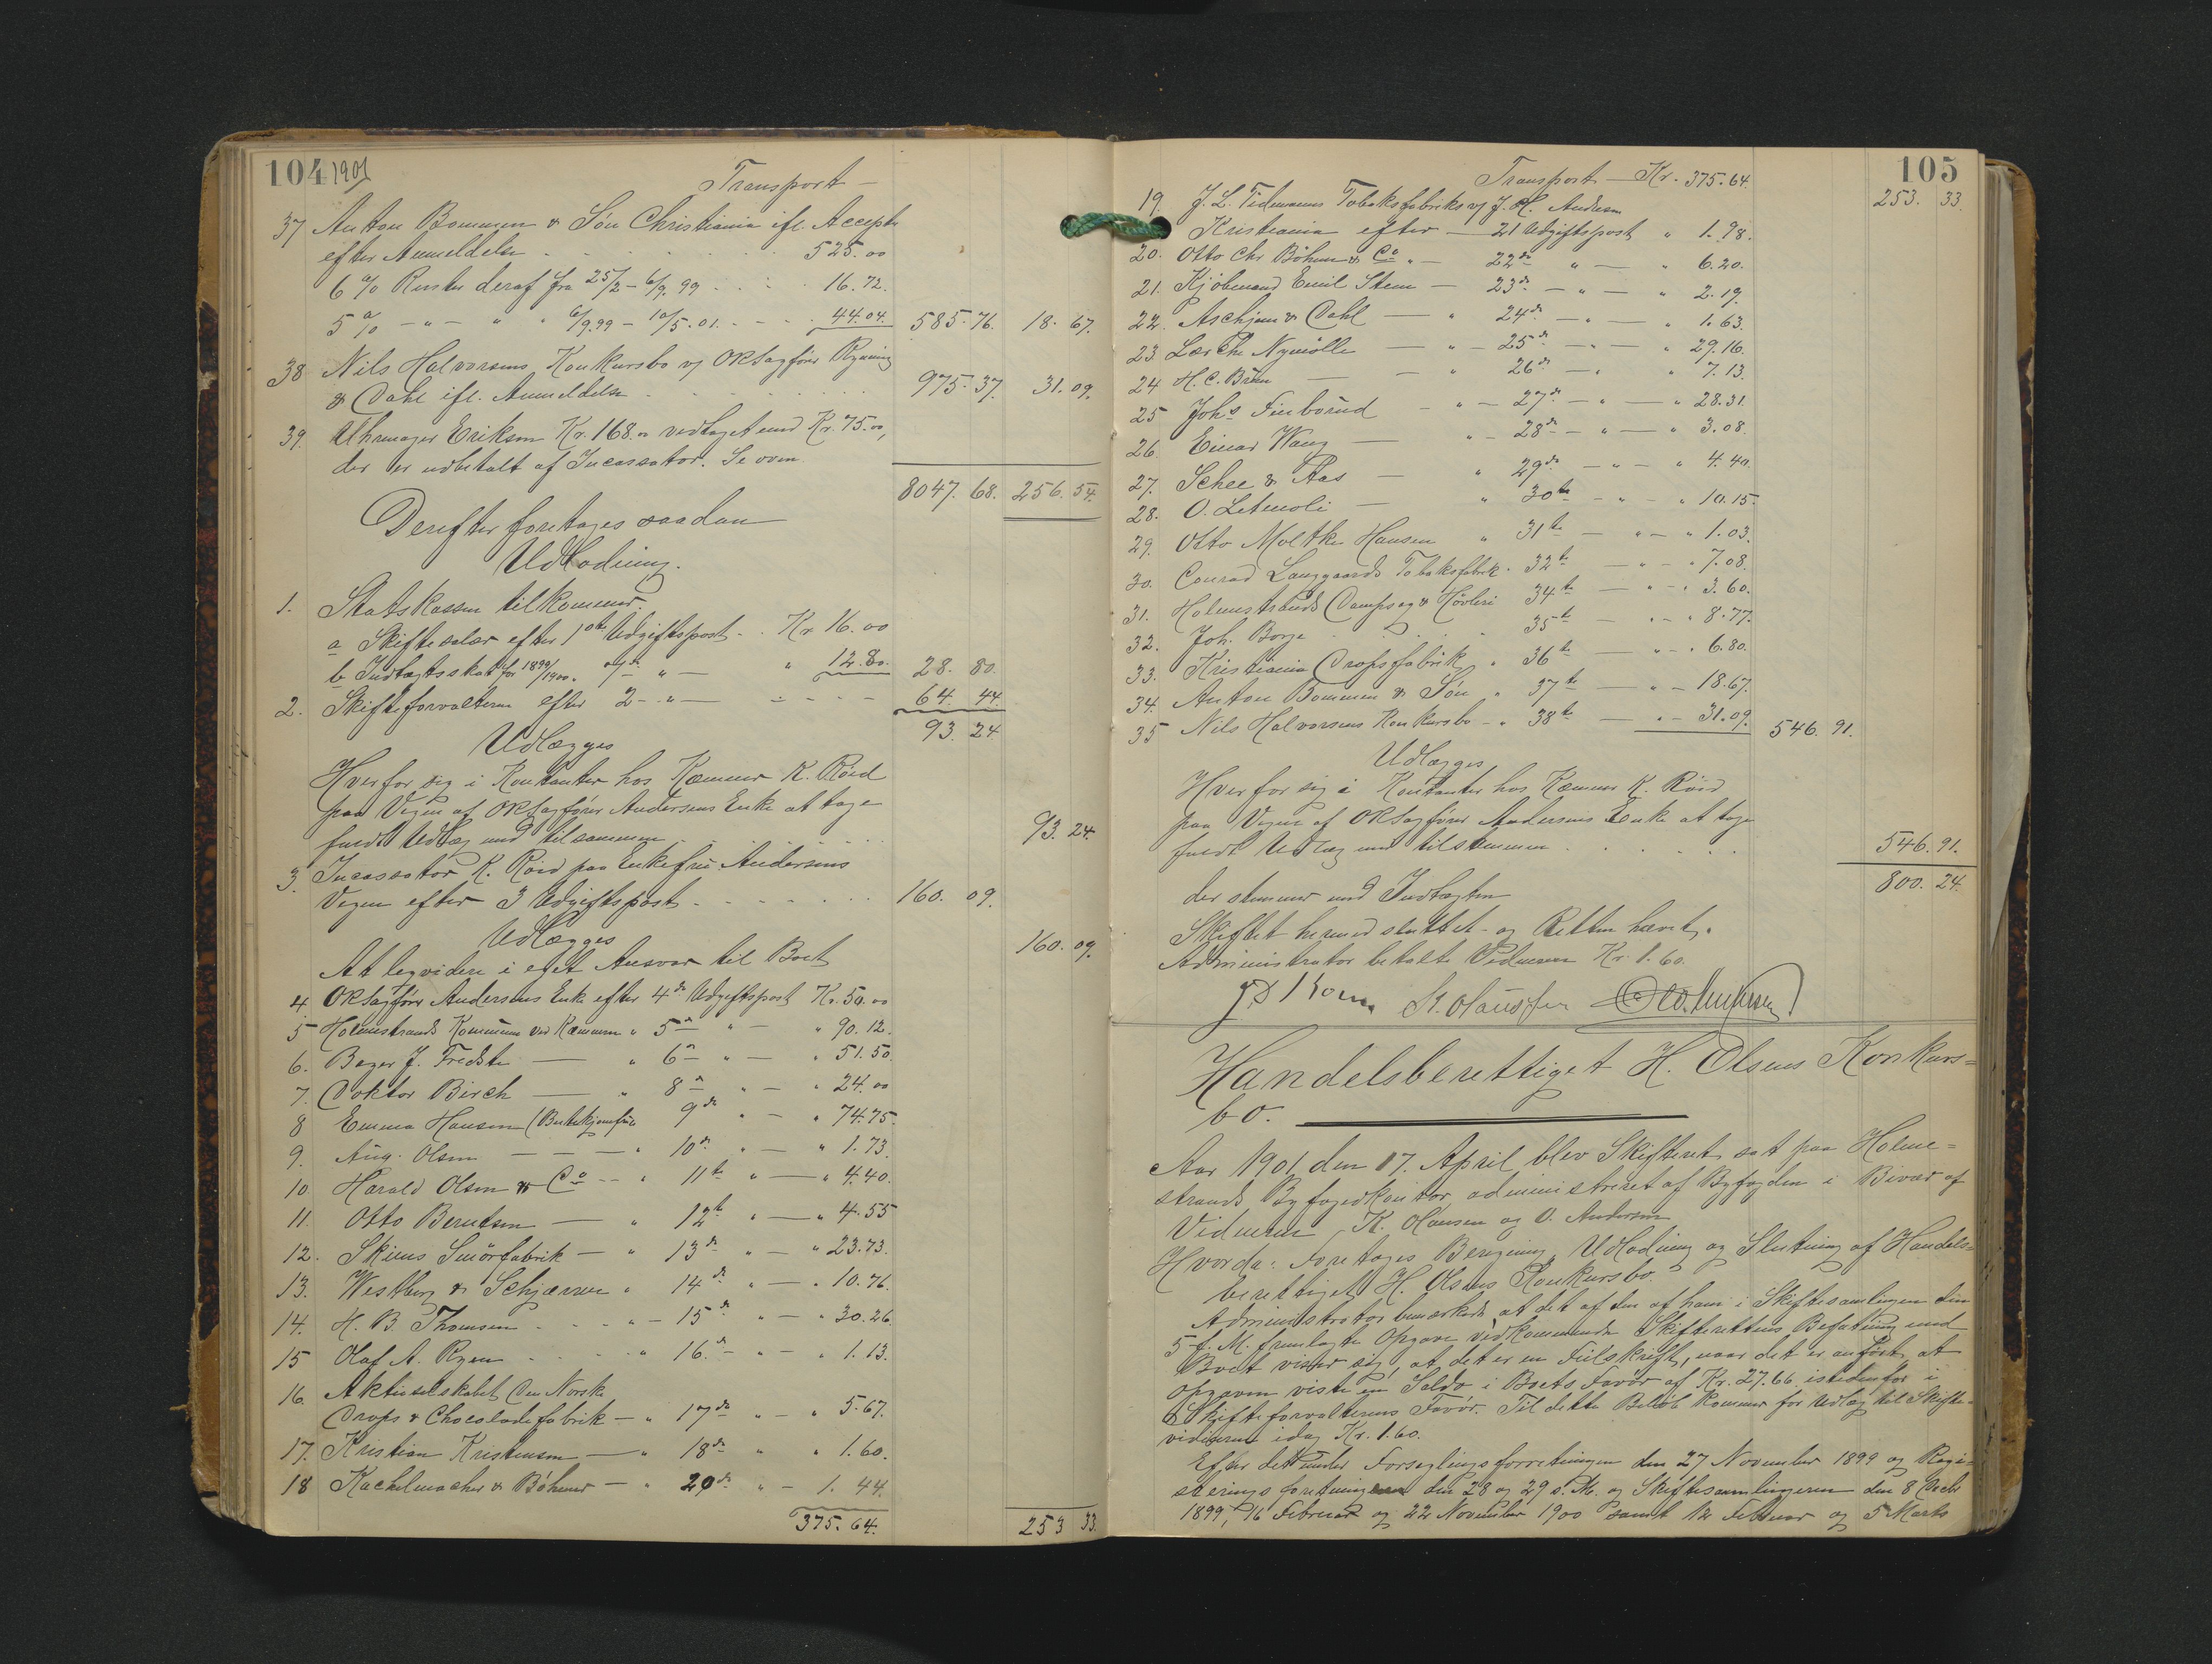 104 1901
Transport —
37 Anton Bommen & Søn Christiania ifl. Accept
efter Anmeldelse . . . . . 525.00
6 % Renter deraf fra 25/2 - 6/9. 99 . . . 16.72.
5 % — " — " " 6/9.99 - 10/5.01. - - . 44.04. 585.76. 18.67.
38 Nils Halvorsens Konkursbo v/ ORSagfører Ryning
& Dahl ifl. Anmeldelse . . . . . 975.37. 31.09.
39. Uhrmager Eriksen Kr. 168.00 vedtaget med Kr. 75.00,
der er udbetalt af Incassator. Se oven.
8047.68. 256.54.
Derefter foretages saadan
Udlodning.
1. Statskassen tilkommer.
a Skiftesalær efter 1ste Udgiftspost - . Kr. 16.00
b Indtægtsskat for 1899/1900. " 7de " — " 12.80. 28.80.
2. Skifteforvalteren efter 2 - " — - - - 64.44.
93.24
Udlægges
Hver for sig i Kontanter hos Kæmner K. Röed
paa Vegne af ORSagfører Andersens Enke at tage
fuldt Udlæg med tilsammen . . . . . 93.24.
3. Incassator K. Röed paa Enkefru Andersens
Vegne efter 3 Udgiftspost - . . . . . 160.09.
Udlægges
At liqvidere i eget Ansvar til Boet 160.09.
4. ORSagfører Andersens Enke efter 4de Udgiftspost Kr. 50.00
5 Holmestrands Kommune ved Kæmneren " 5te " — " 90.12.
6. Bager J. Fredste — " 6te " — " 51.50
7. Doktor Birch — " 8de " — " 24.00
8 Emma Hansen (Butikjomfru 9de " — " 74.75.
9. Aug. Olsen — — — " 10de " — " 1.73.
10. Harald Olsen & Co - - " 11te " — " 4.40.
11. Otto Berntsen — " 12te " — " 4.55
12. Skiens Smörfabrik — " 13de " — " 23.73.
13. Westberg & Schjærven " 14de " — " 10.76.
14. H. B. Thomsen . . . " — 15de " — " 30.26.
15 Olaf A. Ryen . . . . " 16de — " — " 1.13.
16. Aktieselskabet Den Norske
Drops & Chocoladefabrik — " 17de " — " 5.67.
17. Kristian Kristensen — " 18de " " 1.60.
18 Kachelmacher & Böhmer — " 20de " - 1.44.
375.64. 253 33.
105
Transport — Kr. 375.64. 253. 33.
19. J. L. Tidemanns Tobaksfabrik v/ J. H. Andresen
Kristiania efter — 21 Udgiftspost " 1.98.
20. Otto Chr. Böhmer & Co " — 22de " — " 6.20.
21. Kjöbmand Emil Steen — 23de — " — " 2.19.
22. Aschjem & Dahl — " 24de — " — " 1.63.
23 Lærche Nymölle — " — 25de — " — " 29.16.
24 H. C. Bruun — — " 26de — " " 7.13.
25 Johs Finborud - " — 27de — " — " 28.31.
26. Einar Wang — " — 28de — " — " 3.08.
27. Schee & Aas — " 29de — " — " 4.40.
28. O. Letmoli — " 30te — " — " 10.15.
29. Otto Moltke Hansen " 31te — " — " 1.03.
30. Conrad Langgaards Tobaksfabrik . 32te — " — " 7.08.
31. Holmestrands Dampsag & Hövleri 34te — " — " 3.60.
32. Joh. Borge . . . . " 35te — " — " 8.77.
33. Kristiania Dropsfabrik " 36te — " — " 6.80.
34. Anton Bommen & Søn " 37te — " — 18.67.
35 Nils Halvorsens Konkursbo — " 38te — " — 31.09. 546.91.
Udlægges
Hver for sig i Kontanter hos Kæmner K. Röed
paa Vegne af ORSagfører Andersens Enke at tage
fuldt Udlæg med tilsammen . . . . . 546.91.
800.24.
der stemmer med Indtægten
Skiftet hermed sluttet og Retten hævet.
Administrator betalte Vidnerne Kr. 1.60.
K. Olaussen O. Andersen
Handelsberettiget H. Olsens Konkurs=
bo.
Aar 1901 den 17. April blev Skifteret sat paa Holme=
strands Byfogedkontor, administreret af Byfogden i Bivær af
Vidnerne K. Olausen og O. Andersen
Hvorda: Foretages Beregning, Udlodning og Slutning af Handels=
berettiget H. Olsens Konkursbo.
Administrator bemærkede at det af den af ham i Skiftesamlingen den
5 f. M. fremlagte Opgave vedkommende Skifterettens Befatning med
Boet viser sig, at det er en Feilskrift, naar det er anført, at
Opgaven viste en Saldo i Boets Favør af Kr. 27.66 istedenfor i
Skifteforvalterens Favør. Til dette Beløb kommer for Udlæg til Skifte=
vidnerne idag Kr. 1.60.
Efter det under Forseglingsforretningen den 27 November 1899 og Regi=
strerings foretningen den 28 og 29 s. M. og Skiftesamlingerne den 8 Decbr
1899, 16 Februar og 22 November 1900 samt 12 Februar og 5 Marts